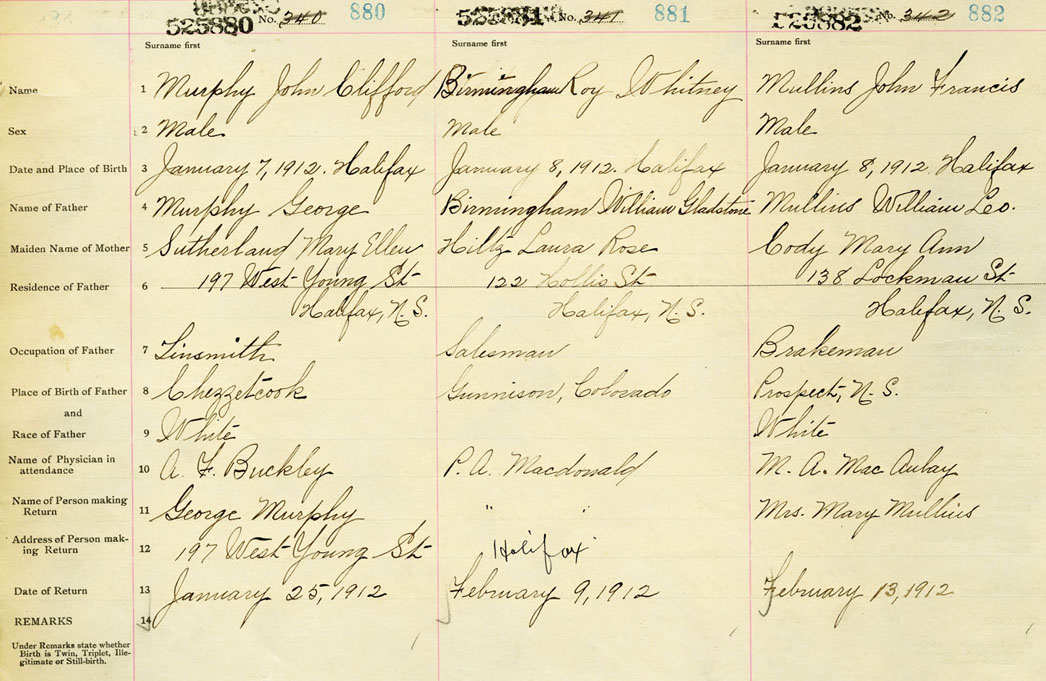 525880 No. 340 880 525881 No. 341 881 525882 No. 342 882
Surname first Surname first Surname first
Name 1 Murphy John Clifford Birmingham Roy Whitney Mullins John Francis
Sex 2 Male Male Male
Date and Place of Birth 3 January 7, 1912. Halifax January 8, 1912. Halifax January 8, 1912. Halifax
Name of Father 4 Murphy George Birmingham William Gladstone Mullins William Leo.
Maiden Name of Mother 5 Sutherland Mary Ellen Hiltz Laura Rose Cody Mary Ann
Residence of Father 6 197 West Young St 122 Hollis St 138 Lockman St
Halifax, N.S. Halifax, N.S. Halifax, N.S.
Occupation of Father 7 Tinsmith Salesman Brakeman
Place of Birth of Father 8 Chezzetcook Gunnison, Colorado Prospect, N.S.
and
Race of Father 9 White White
Name of Physician in
attendance 10 A. F. Buckley P. A. Macdonald M. A. MacAulay
Name of Person making
Return 11 George Murphy " " Mrs. Mary Mullins
Address of Person mak-
ing Return 12 197 West Young St Halifax
Date of Return 13 January 25, 1912 February 9, 1912 February 13, 1912
REMARKS 14
Under Remarks state whether
Birth is Twin, Triplet, Ille-
gitimate or Still-birth.